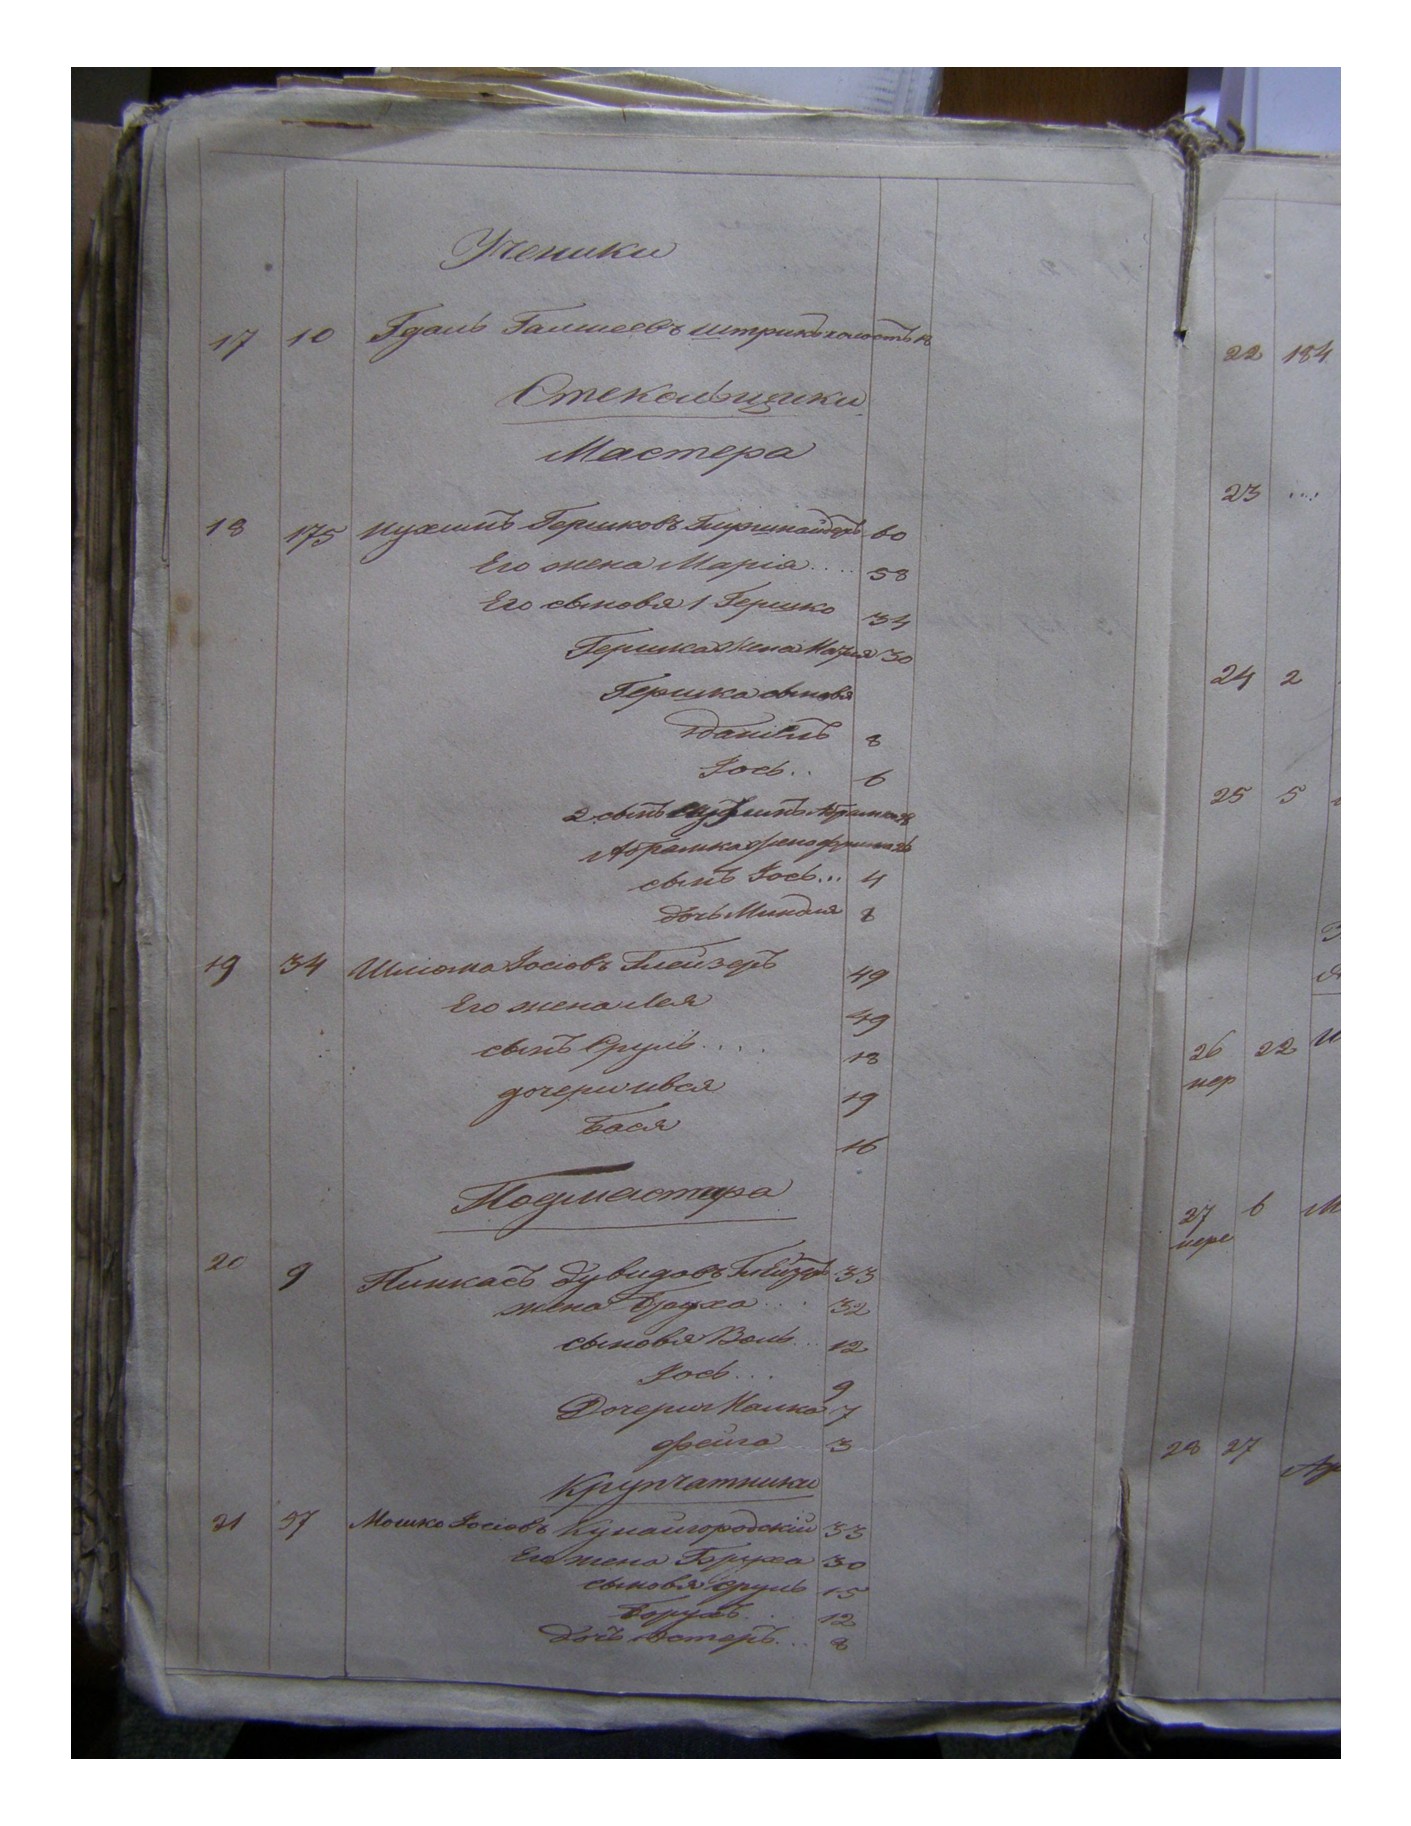 Ученики
17 10 Гдаль Галшеевъ Штрикъ холостъ 18
Стекольщики
Мастера
18 175 Нухимъ Гершковъ 60
Его жена Марія.... 58
Его сыновя 1 Гершко 34
Гершка жена Марья 30
Гершка сыновя
Даніилъ 8
Іось.. 6
2 сынъ Абрамко 28
Абрамка жена 26
сынъ Іось... 4
дочь Миндля 8
19 34 Шліома Іосіовъ Глейзеръ 49
Его жена Лея 49
сынъ Сруль.... 18
дочери Ився 19
Бася 16
Подмастера
20 9 Пинкасъ Дувидовъ Глейзеръ 33
жена Бруха... 32
сыновя Воль... 12
Іось... 9
Дочери Малка 7
Фейга 3
Крупчатники
21 57 Мошко Іосіовъ Кунайгородскій 33
Его жена Бруха 30
сыновя Сруль 15
Борухъ... 12
дочь Эстеръ... 8
22 184
23 ....
24 2
25 5
26 22
пер
27 6
пере
28 27